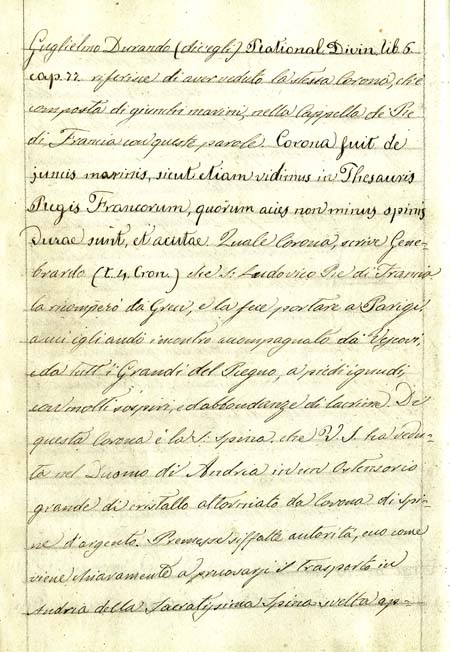 Guglielmo Durando (dic'egli) Rational. Divin. lib. 6.
cap. 77 riferisce di aver veduto la stessa Corona, ch'è
composta di giunchi marini, nella Cappella de' Re
di Francia con queste parole. Corona fuit de
juncis marinis, sicut etiam vidimus in Thesauris
Regis Francorum, quorum acies non minus spinis
durae sunt, et acutae. Quale Corona, scrive Gene-
brardo (l. 4. Cron.) che S. Ludovico Re di Francia
la ricomperò da Greci, e la fece portare a Parigi,
a cui egli andò incontro accompagnato da' Vescovi,
e da tutt'i Grandi del Regno, a piedi ignudi,
con molti sospiri, ed abbondanze di lacrime. De
questa Corona è la S. Spina, che V. S. ha vedu-
ta nel Duomo di Andria in un Ostensorio
grande di cristallo attorniato da Corona di spi-
ne d'argento. Premesse siffatte autorità, ecco come
viene chiaramente a provarsi il trasporto in
Andria della Sacratissima Spina svelta ap-